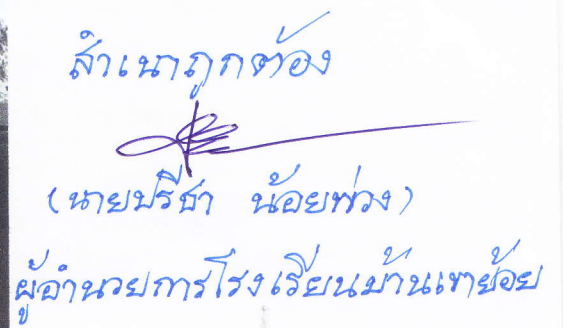 สำเนาถูกต้อง
(นายปรีชา น้อยพ่วง)
ผู้อำนวยการโรงเรียนบ้านเขาย้อย